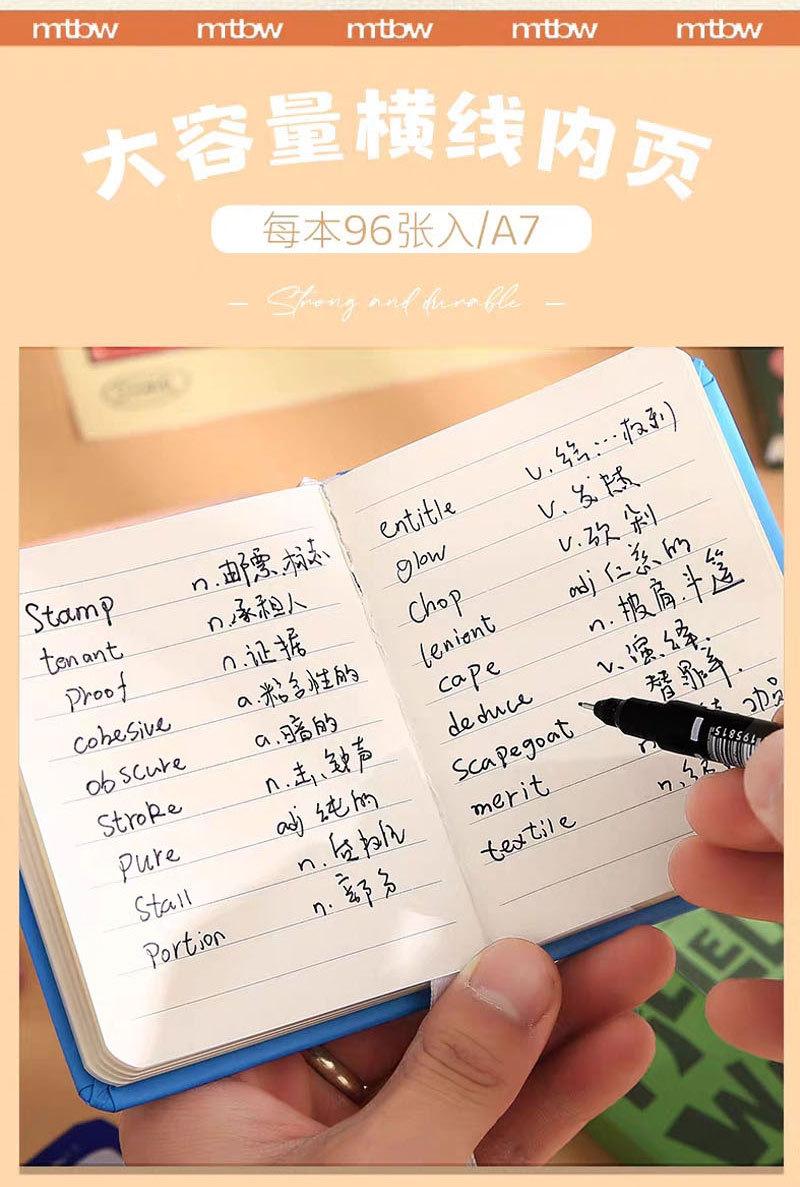 mtbw mtbw mtbw mtbw mtbw
大容量横线内页
每本96张入/A7
Strong and durable
Stamp n.邮票.标志
tenant n.承租人
proof n.证据
cohesive a.粘合性的
obscure a.暗的
Stroke n.击.钟声
pure adj 纯的
Stall n.
portion n.部分
entitle v.给…权利
glow v.发热
chop v.砍 剁
lenient adj 仁慈的
cape n.披肩.斗篷
deduce v.演绎.
scapegoat 替罪羊.
merit n.
textile n.
195815